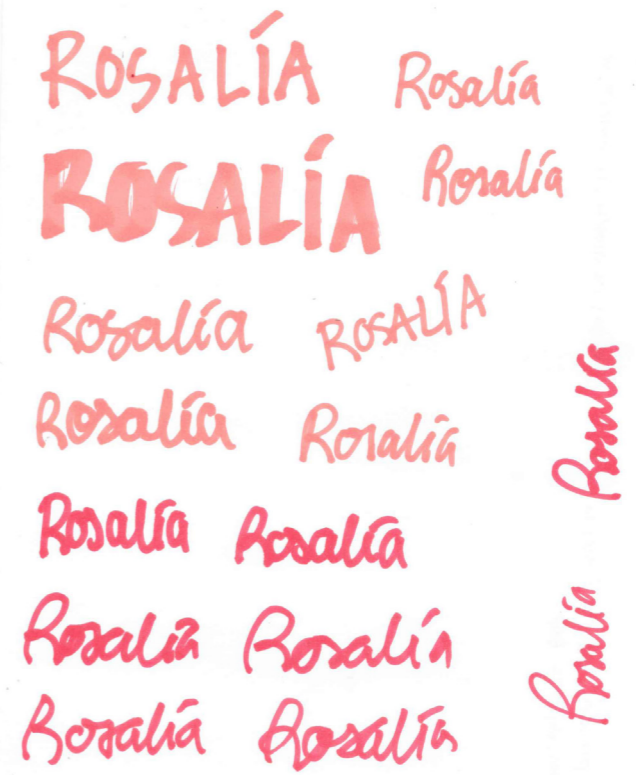 ROSALÍA
Rosalía
ROSALÍA
Rosalía
Rosalía
ROSALÍA
Rosalía
Rosalía
Rosalía
Rosalía
Rosalía
Rosalía
Rosalía
Rosalía
Rosalía
Rosalía